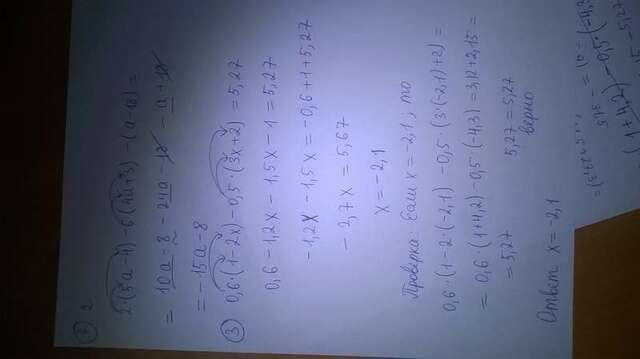 ② 2
2·(5a-4)-6(4a+3)-(a-18)=
= 10a-8-24a-18-a+18
= -15a-8
③ 0,6·(1-2x)-0,5·(3x+2)=5,27
0,6-1,2x-1,5x-1=5,27
-1,2x-1,5x=-0,6+1+5,27
-2,7x=5,67
x=-2,1
Проверка: Если x=-2,1; то
0,6·(1-2(-2,1)-0,5·(3·(-2,1)+2)=
=0,6(1+4,2)-0,5(-4,3)=3,12+2,15=
=5,27
5,27=5,27
верно
Ответ x=-2,1
(1+4,2)-0,5·(-4,3